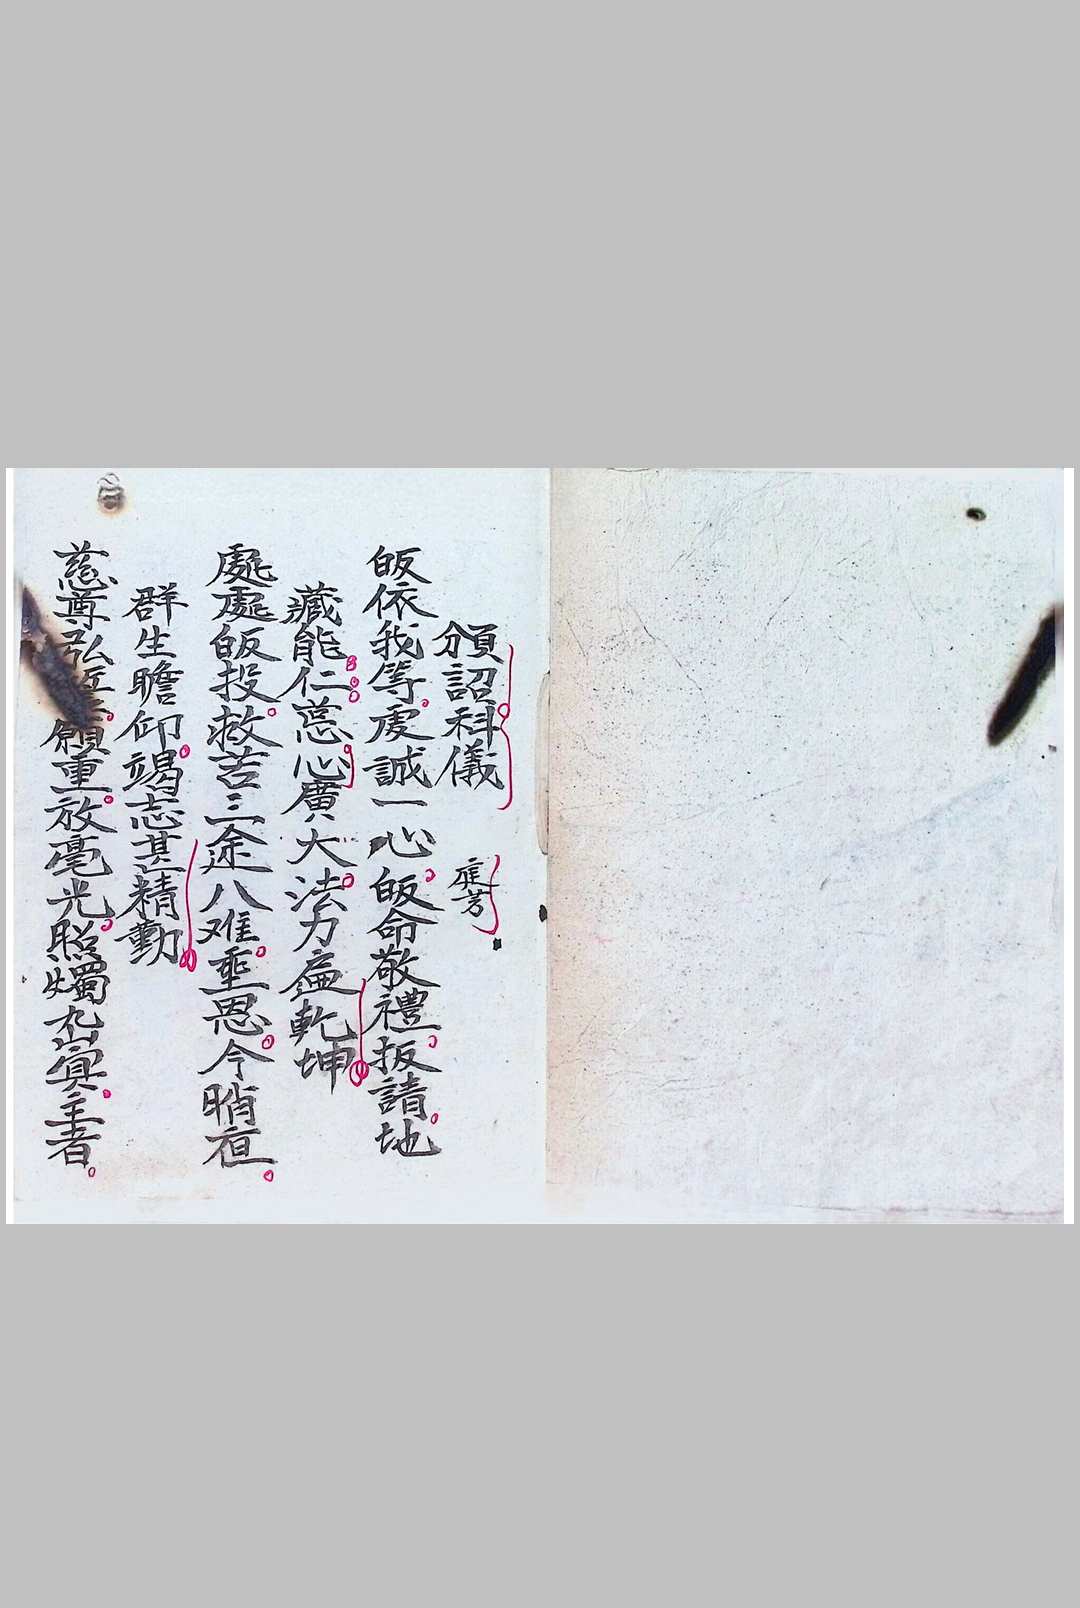 頒詔科儀 庭芳
皈依我等虔誠一心皈命敬禮扳請地
藏能仁慈心廣大法力扁乾坤
處處皈投救苦三途八难垂恩今晌夜
群生瞻仰竭志甚精勤
慈尊弘願重放毫光照燭九幽冥主者